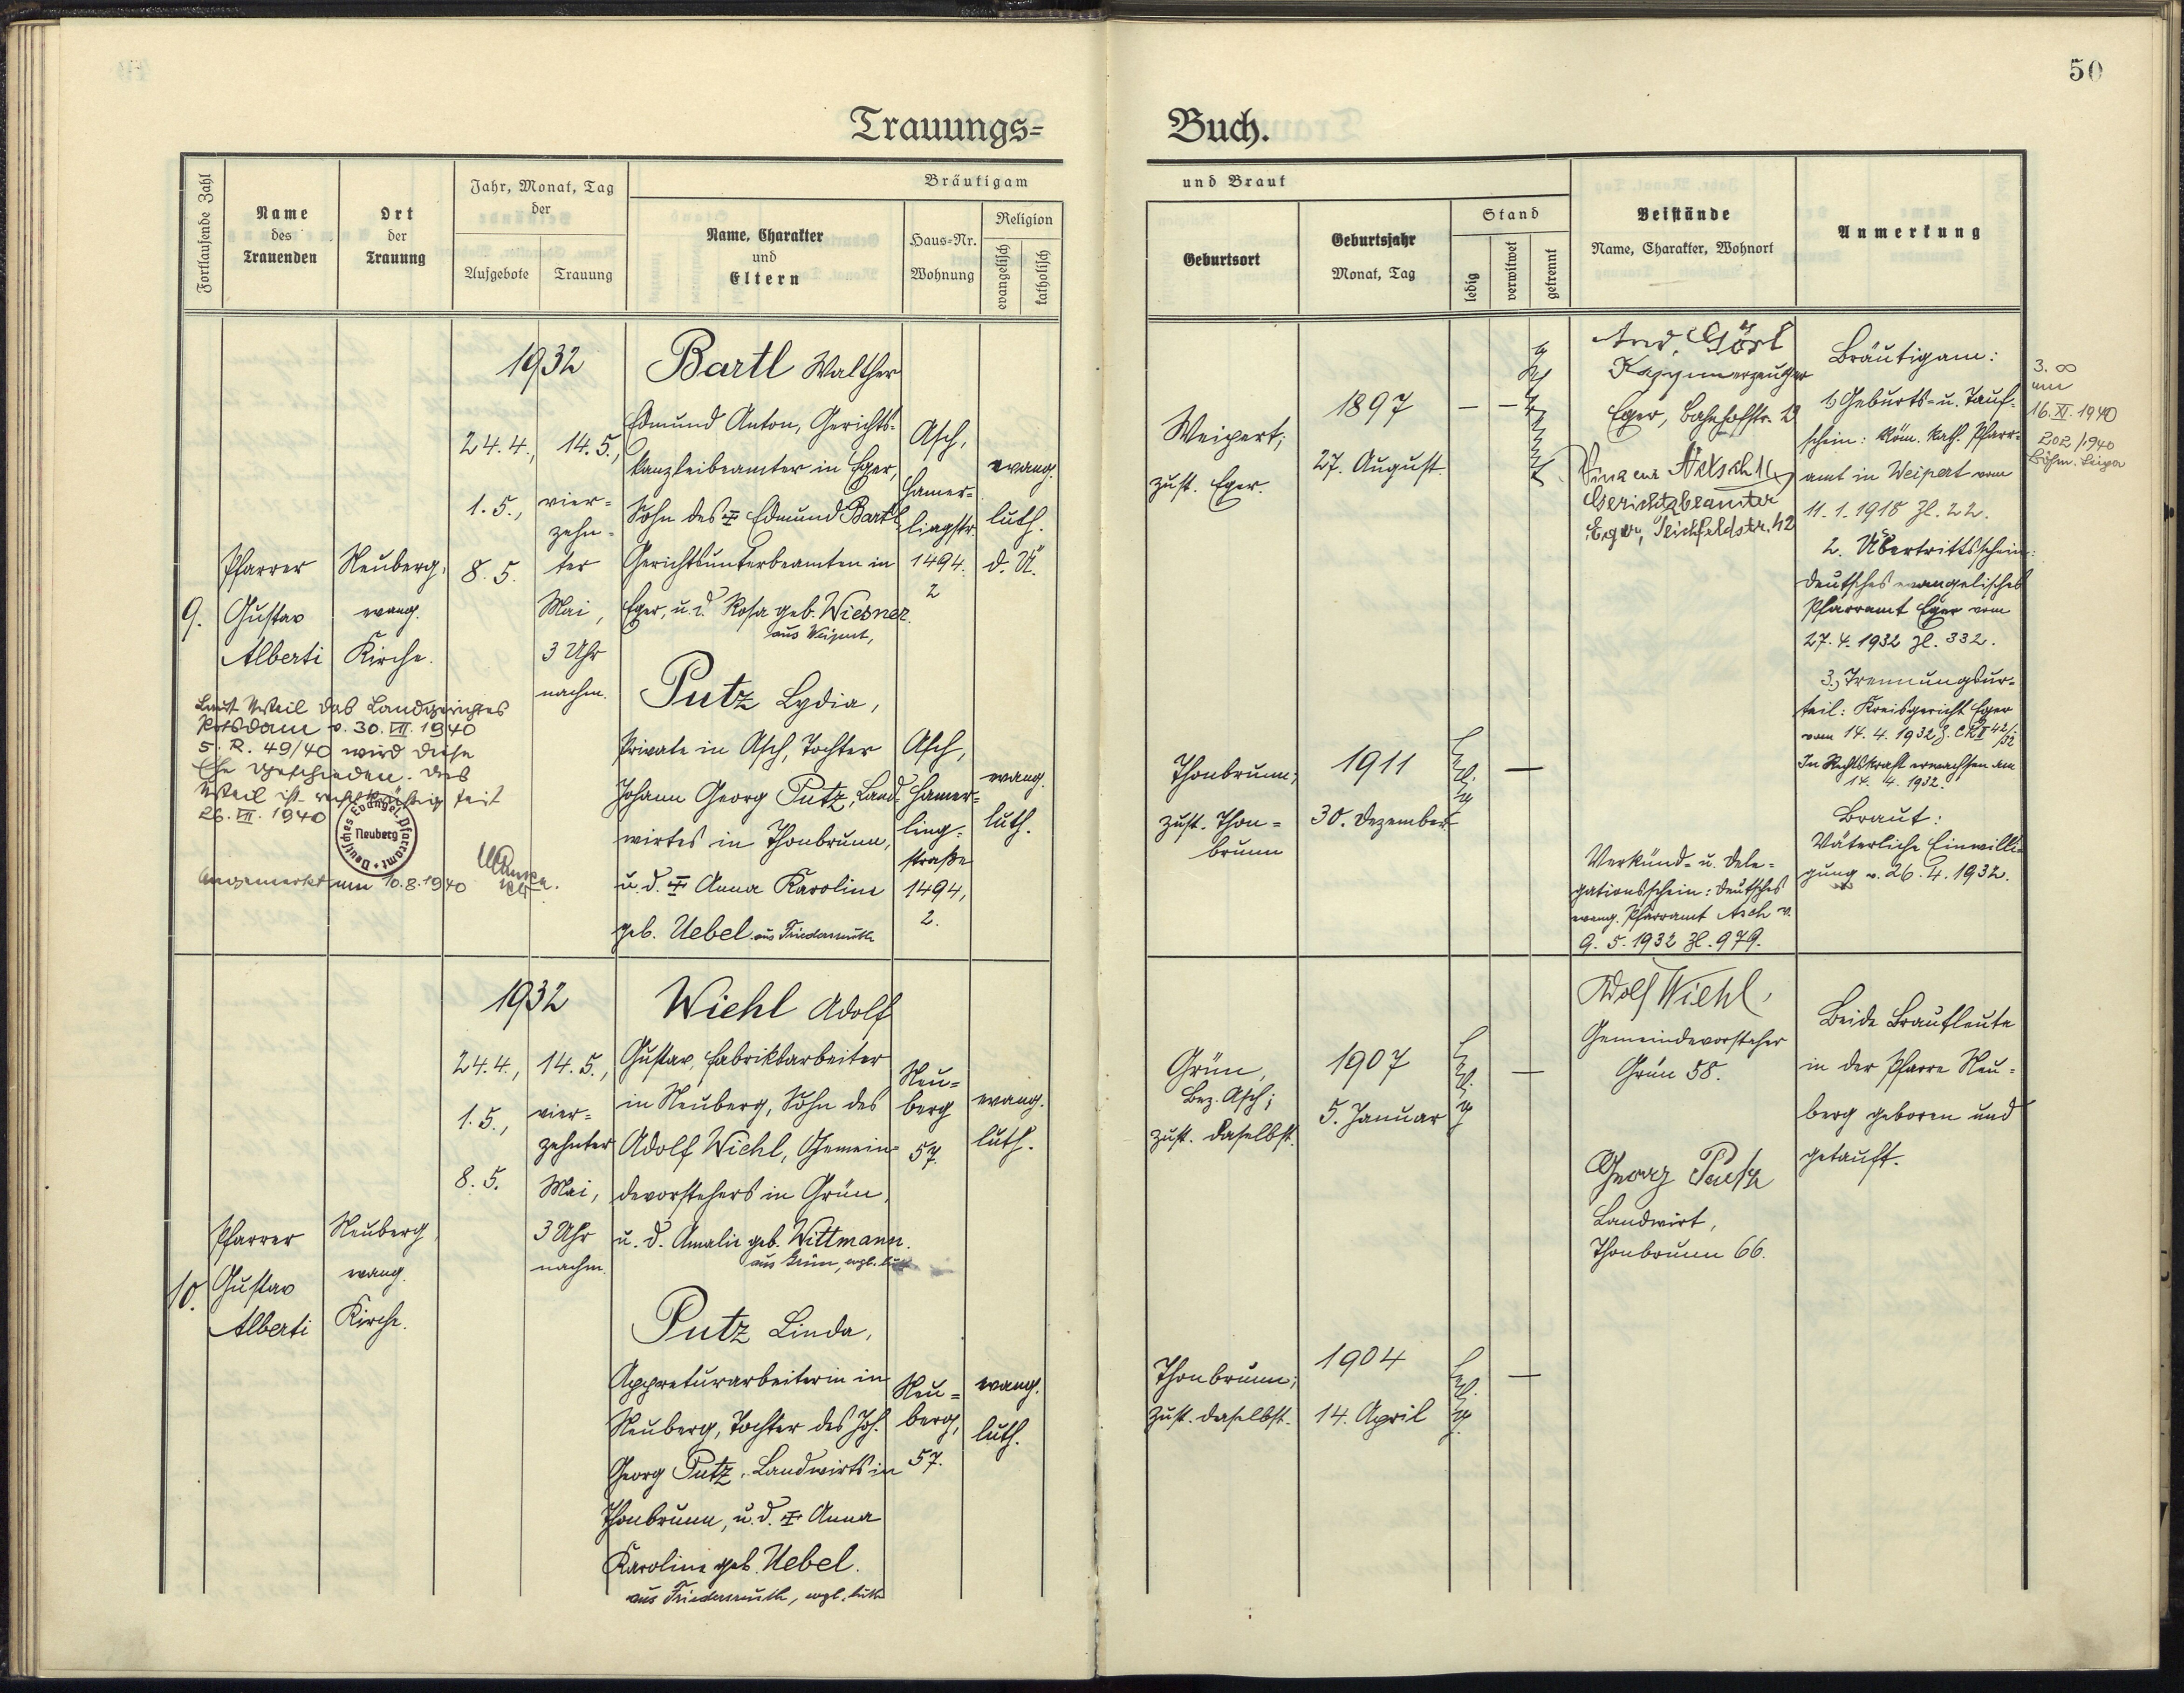 50
Trauungs=
Buch.
Fortlaufende Zahl
Name
des
Trauenden
Ort
der
Trauung
Jahr, Monat, Tag
der
Aufgebote
Trauung
Bräutigam
Name, Charakter
und
Eltern
Haus=Nr.
Wohnung
Religion
evangelisch
katholisch
und Braut
Geburtsort
Geburtsjahr
Monat, Tag
Stand
ledig
verwitwet
getrennt
Beistände
Name, Charakter, Wohnort
Anmerkung
9.
Pfarrer
Gustav
Alberti
Neuberg,
evang.
Kirche.
1932
24.4.,
1.5.,
8.5.
14.5.,
vier=
zehn=
ter
Mai,
3 Uhr
nachm.
Bartl Walther
Edmund Anton, Gerichts=
kanzleibeamter in Eger,
Sohn des Edmund Bartl
Gerichtsunterbeamten in
Eger, u. d. Rosa geb. Wiesner.
aus Weipert,
Asch,
Hamer=
lingstr.
1494.
2
evang.
luth.
d. Ü.
Putz Lydia,
Private in Asch, Tochter
Johann Georg Putz, Land=
wirtes in Thonbrunn,
u. d. Anna Karoline
geb. Uebel aus Friedersreuth
Asch,
Hamer=
ling=
straße
1494,
2.
evang.
luth.
Laut Urteil des Landgerichtes
Potsdam v. 30. VII. 1940
5. R. 49/40 wird diese
Ehe geschieden. Das
Urteil ist rechtskräftig seit
26. VII. 1940
Deutsches Evangel. Pfarramt
Neuberg
Angemerkt am 10.8.1940
Weipert;
zust. Eger.
1897
27. August
— —
Thonbrunn;
zust. Thon=
brunn
1911
30. Dezember
ledig
—
And. Görl
Eger, Bahnhofstr.
Gerichtsbeamter
Eger,
Verkünd= u. Dele=
gationsschein: Deutsches
evang. Pfarramt Asch v.
9. 5. 1932 Zl. 979.
Bräutigam:
1. Geburts= u. Tauf=
schein: Röm. kath. Pfarr=
amt in Weipert vom
11. 1. 1918 Zl. 22.
2. Übertrittsschein:
Deutsches evangelisches
Pfarramt Eger vom
27. 4. 1932 Zl. 332.
3., Trennungsur=
teil: Kreisgericht Eger
vom 14. 4. 1932
In Rechtskraft erwachsen am
14. 4. 1932.
Braut:
Väterliche Einwilli=
gung v. 26. 4. 1932.
3. ∞
am
16. XI. 1940
202/1940
Böhm. Leipa
10.
Pfarrer
Gustav
Alberti
Neuberg,
evang.
Kirche.
1932
24.4.,
1.5.,
8.5.
14.5.,
vier=
zehnter
Mai,
3 Uhr
nachm.
Wiehl Adolf
Gustav, Fabriksarbeiter
in Neuberg, Sohn des
Adolf Wiehl, Gemein=
devorstehers in Grün,
u. d. Amalie geb. Wittmann.
aus Grün, evgl. luth
Neu=
berg
57.
evang.
luth.
Putz Linda,
Appreturarbeiterin in
Neuberg, Tochter des Joh.
Georg Putz, Landwirts in
Thonbrunn, u. d. Anna
Karoline geb. Uebel.
aus Friedersreuth, evgl. luth
Neu=
berg,
57.
evang.
luth.
Grün,
Bez. Asch;
zust. daselbst.
1907
5. Januar
ledig
—
Thonbrunn;
zust. daselbst.
1904
14. April
ledig
—
Adolf Wiehl,
Gemeindevorsteher
Grün 58.
Georg Putz
Landwirt,
Thonbrunn 66.
Beide Brautleute
in der Pfarre Neu=
berg geboren und
getauft.